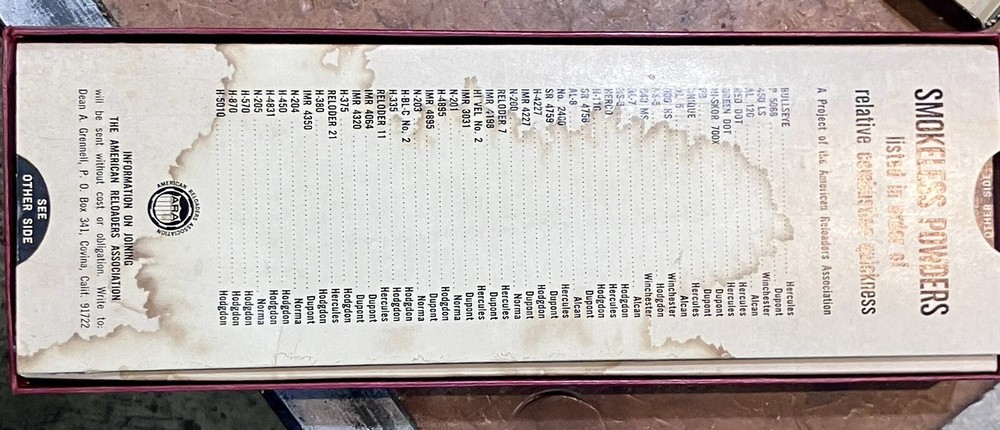 SMOKELESS POWDERS
listed in order of
relative quickness
A Project of the American Reloaders Association
BULLSEYE Hercules
P 5066 Dupont
450 LS Winchester
AL 120 Alcan
RED DOT Hercules
GREEN DOT Hercules
HI-SKOR 700X Dupont
PB Dupont
UNIQUE Hercules
AL 5 Alcan
500 HS Winchester
HS-5 Hodgdon
540 MS Winchester
AL-7 Alcan
HS-6 Hodgdon
HERCO Hercules
H-110 Hodgdon
SR 4756 Dupont
AL-8 Alcan
No. 2400 Hercules
SR 4759 Dupont
H-4227 Hodgdon
IMR 4227 Dupont
N-200 Norma
RELODER 7 Hercules
IMR 4198 Dupont
HI VEL No. 2 Hercules
IMR 3031 Dupont
N-201 Norma
H-4895 Hodgdon
IMR 4895 Dupont
N-203 Norma
H-BL-C No. 2 Hodgdon
H-335 Hodgdon
RELODER 11 Hercules
IMR 4064 Dupont
IMR 4320 Dupont
H-375 Hodgdon
RELODER 21 Hercules
H-380 Hodgdon
IMR 4350 Dupont
N-204 Norma
H-450 Hodgdon
H-4831 Hodgdon
N-205 Norma
H-570 Hodgdon
H-870 Hodgdon
H-5010 Hodgdon
AMERICAN RELOADERS ASSOCIATION
ARA
INFORMATION ON JOINING
THE AMERICAN RELOADERS ASSOCIATION
will be sent without cost or obligation. Write to:
Dean A. Grennell, P. O. Box 341, Covina, Calif. 91722
SEE
OTHER SIDE
OTHER SIDE